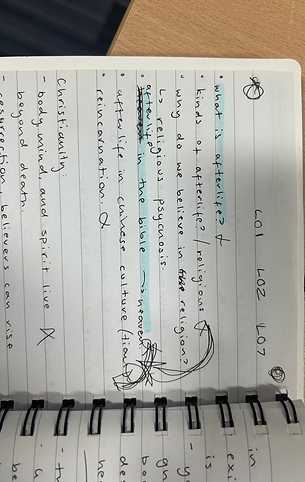 LO1 LO2 LO7
• what is afterlife?
• kinds of afterlife? / religions
• why do we believe in religion?
↳ religious psychosis.
• afterlife in the bible → heaven
• afterlife in chinese culture
• reincarnation.
Christianity:
- body, mind and spirit live
beyond death.
- resurrection, believers can rise
in
is